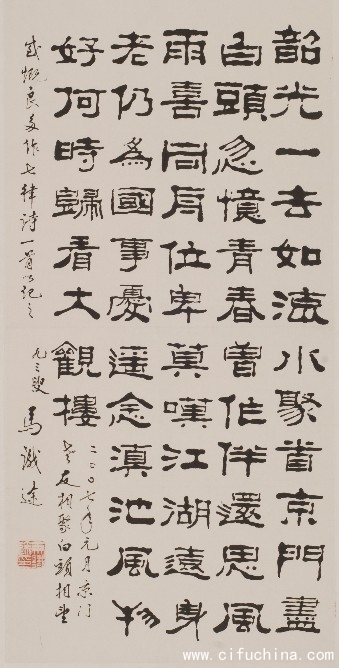 韶光一去如流水聚首京門盡
白頭忽憶青春曾作伴還思風
雨喜同舟位卑莫嘆江湖遠身
老仍為國事憂遥念滇池風物
好何時歸看大觀樓
二〇〇七年元月京门
老友相聚白頭相望
感慨良多作七律诗一首以纪之
九三叟 馬識途
www.cifuchina.com